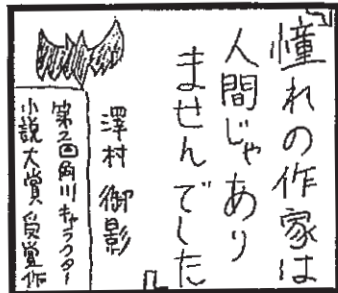 『憧れの作家は
人間じゃあり
ませんでした』
澤村御影
第2回角川キャラクター
小説大賞受賞作